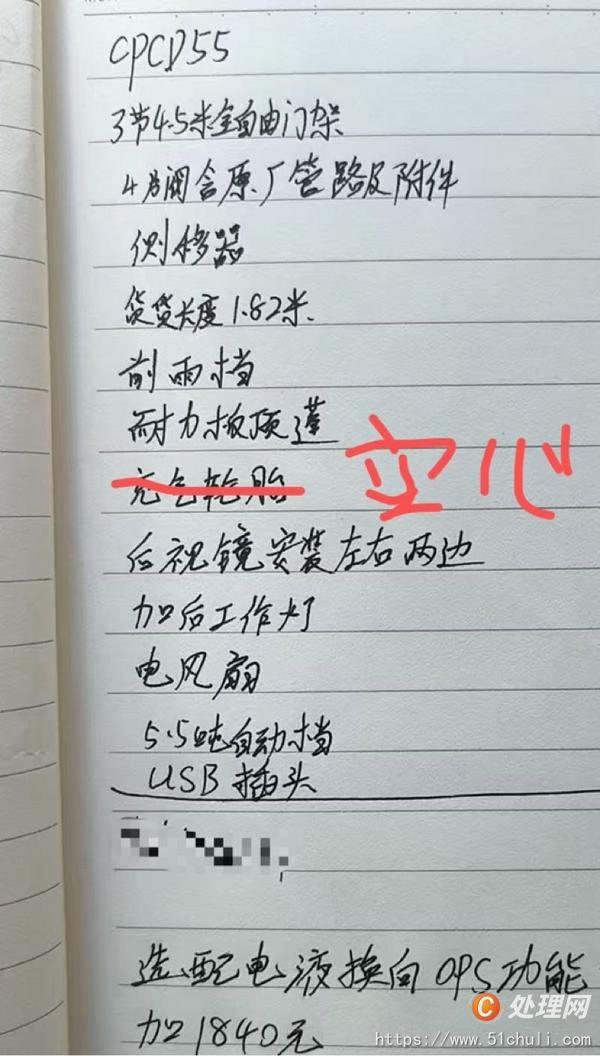 CPCD55
3节4.5米全自由门架
4片阀含原厂管路及附件
侧移器
货货长度1.82米
前雨挡
耐力板顶蓬
充气轮胎 空心
后视镜安装左右两边
加后工作灯
电风扇
5.5吨自动挡
USB插头
选配电液换向OPS功能
加1840元
C处理网
https://www.51chuli.com/